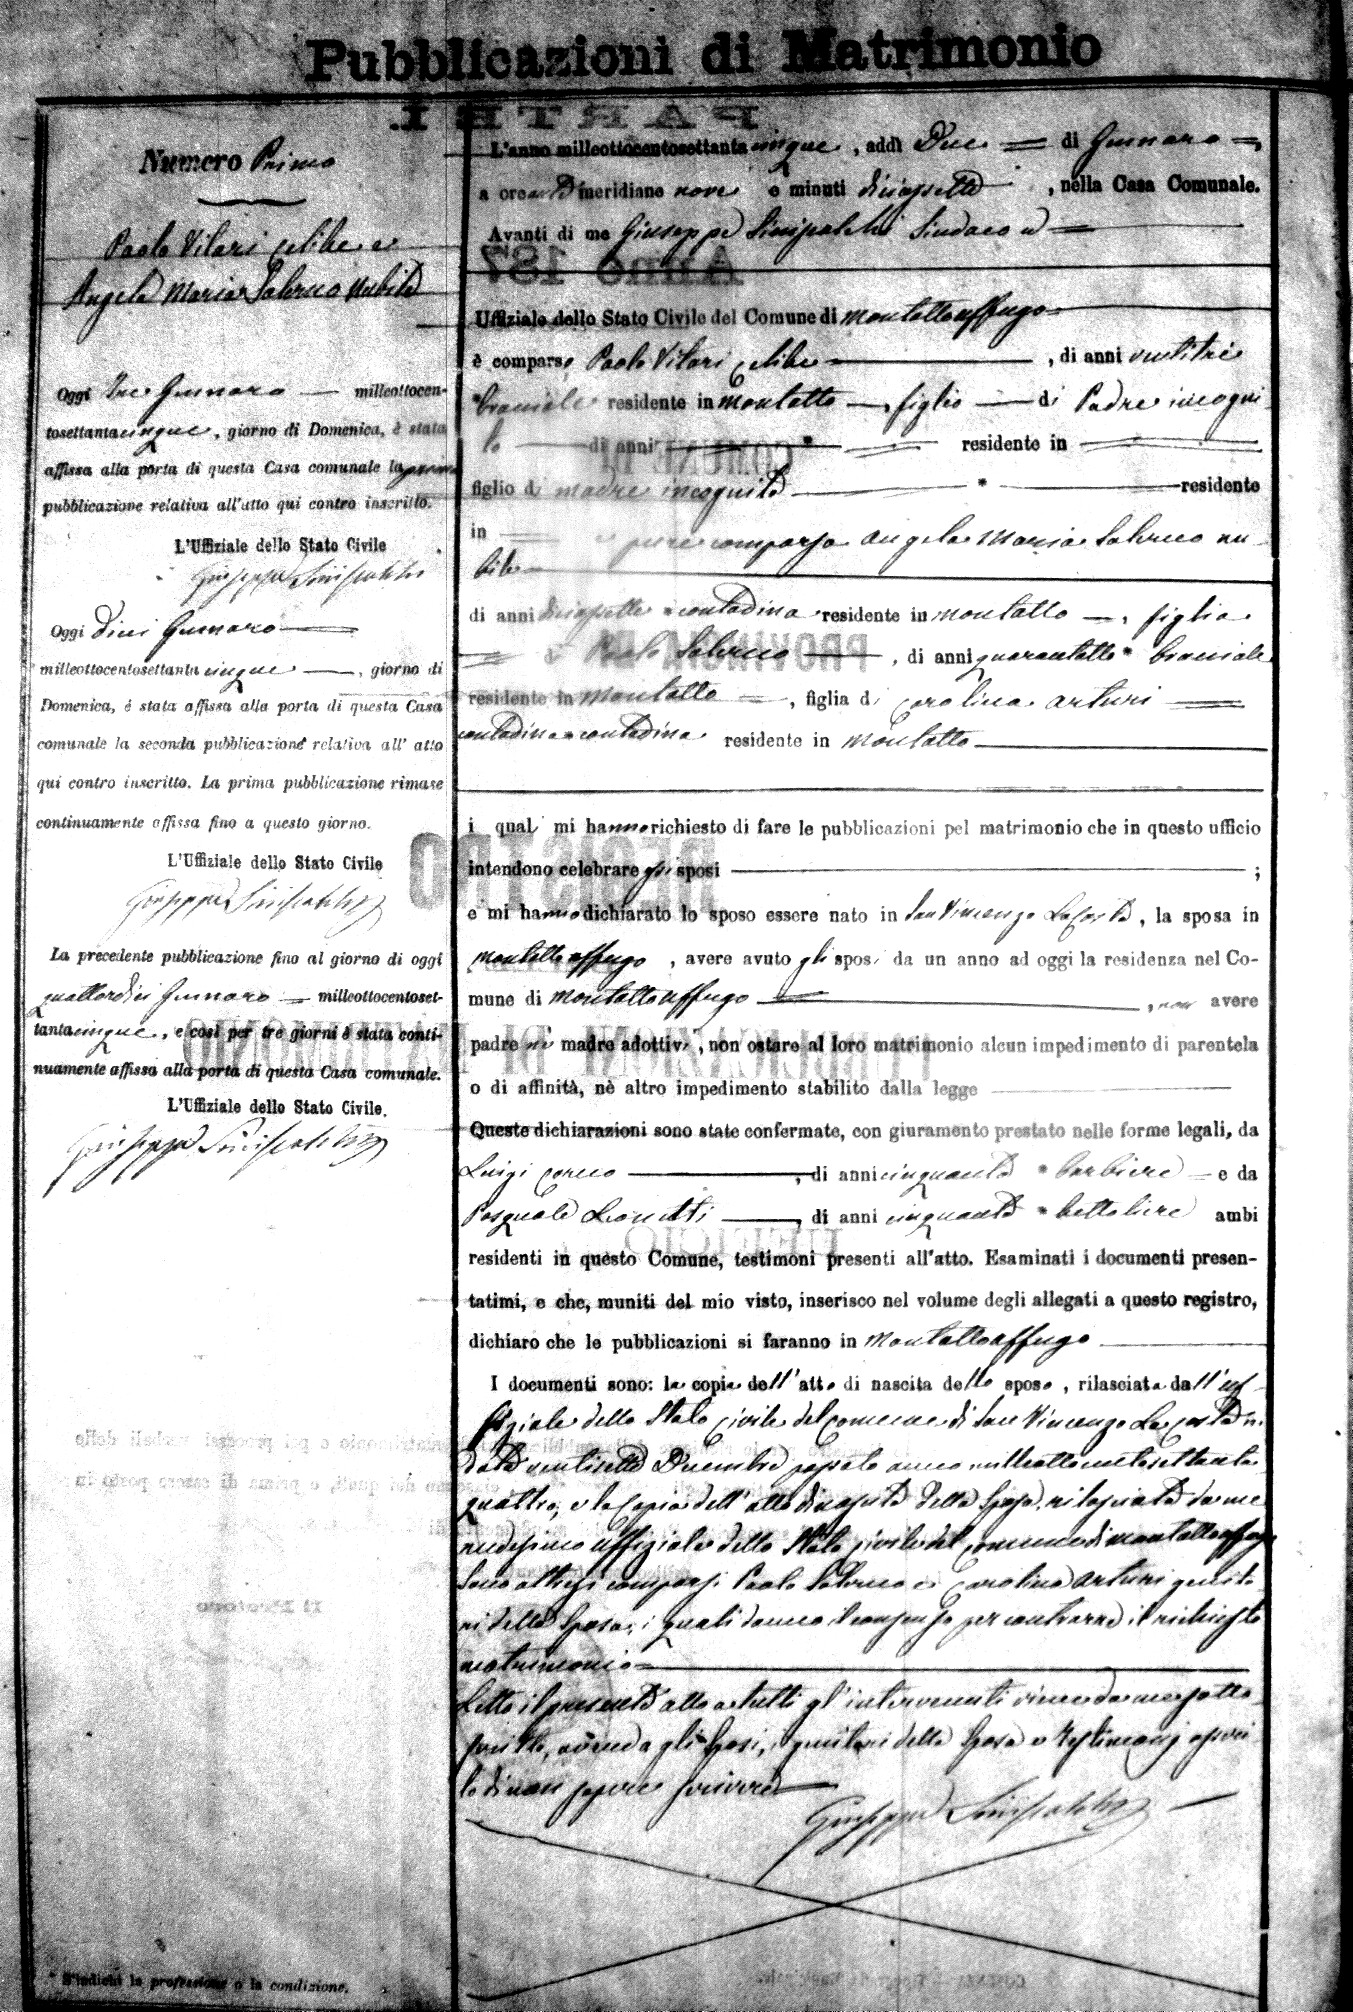 Pubblicazioni di Matrimonio
Numero Primo
Paolo Vilari celibe e
Angela Maria Salerno Nubile
Oggi Tre Gennaro milleottocen-
tosettantacinque, giorno di Domenica, è stata
affissa alla porta di questa Casa comunale la prima
pubblicazione relativa all'atto qui contro inscritto.
L'Uffiziale dello Stato Civile
Giuseppe Siniscalchi
Oggi dieci Gennaro
milleottocentosettantacinque, giorno di
Domenica, è stata affissa alla porta di questa Casa
comunale la seconda pubblicazione relativa all' atto
qui contro inscritto. La prima pubblicazione rimase
continuamente affissa fino a questo giorno.
L'Uffiziale dello Stato Civile
Giuseppe Siniscalchi
La precedente pubblicazione fino al giorno di oggi
quattordici Gennaro milleottocentoset-
tantacinque, e così per tre giorni è stata conti-
nuamente affissa alla porta di questa Casa comunale.
L'Uffiziale dello Stato Civile.
Giuseppe Siniscalchi
* S'indichi la professione o la condizione.
L'anno milleottocentosettantacinque, addì Due di Gennaro,
a ore antimeridiane nove e minuti diciassette, nella Casa Comunale.
Avanti di me Giuseppe Siniscalchi Sindaco ed
Uffiziale dello Stato Civile del Comune di Montaltouffugo
è comparso Paolo Vilari celibe, di anni ventitre
*bracciale residente in Montalto, figlio di Padre incogni
to di anni * residente in
figlio di madre incognita * residente
in e pure comparsa Angela Maria Salerno nu-
bile
di anni diciassette * contadina residente in Montalto, figlia
di Paolo Salerno, di anni quarantotto * bracciale
residente in Montalto, figlia di Carolina Arturi
contadina * contadina residente in Montalto
i quali mi hanno richiesto di fare le pubblicazioni pel matrimonio che in questo ufficio
intendono celebrare essi sposi ;
e mi hanno dichiarato lo sposo essere nato in San Vincenzo La Costa, la sposa in
Montaltouffugo, avere avuto gli sposi da un anno ad oggi la residenza nel Co-
mune di Montaltouffugo, non avere
padre nè madre adottivi, non ostare al loro matrimonio alcun impedimento di parentela
o di affinità, nè altro impedimento stabilito dalla legge
Queste dichiarazioni sono state confermate, con giuramento prestato nelle forme legali, da
Luigi, di anni cinquanta * barbiere e da
Pasquale Leonetti, di anni cinquanta * bettoliere ambi
residenti in questo Comune, testimoni presenti all'atto. Esaminati i documenti presen-
tatimi, e che, muniti del mio visto, inserisco nel volume degli allegati a questo registro,
dichiaro che le pubblicazioni si faranno in Montaltouffugo
I documenti sono: la copia dell'atto di nascita dello sposo, rilasciata dall'uf-
fiziale dello Stato civile del Comune di San Vincenzo La Costa in
data ventisette Decembre passato anno milleottocentosettanta
quattro, e la copia dell'atto di nascita della Sposa, rilasciata da me
medesimo uffiziale dello Stato civile del comune di Montaltouffugo
Sono altresì comparsi Paolo Salerno e Carolina Arturi genito
ri della Sposa, i quali danno il consenso per contrarre il richiesto
matrimonio
Letto il presente atto a tutti gl'intervenuti viene da me sotto
scritto, avendo gli Sposi, i genitori della Sposa e Testimonj asseri
to di non sapere scrivere
Giuseppe Siniscalchi